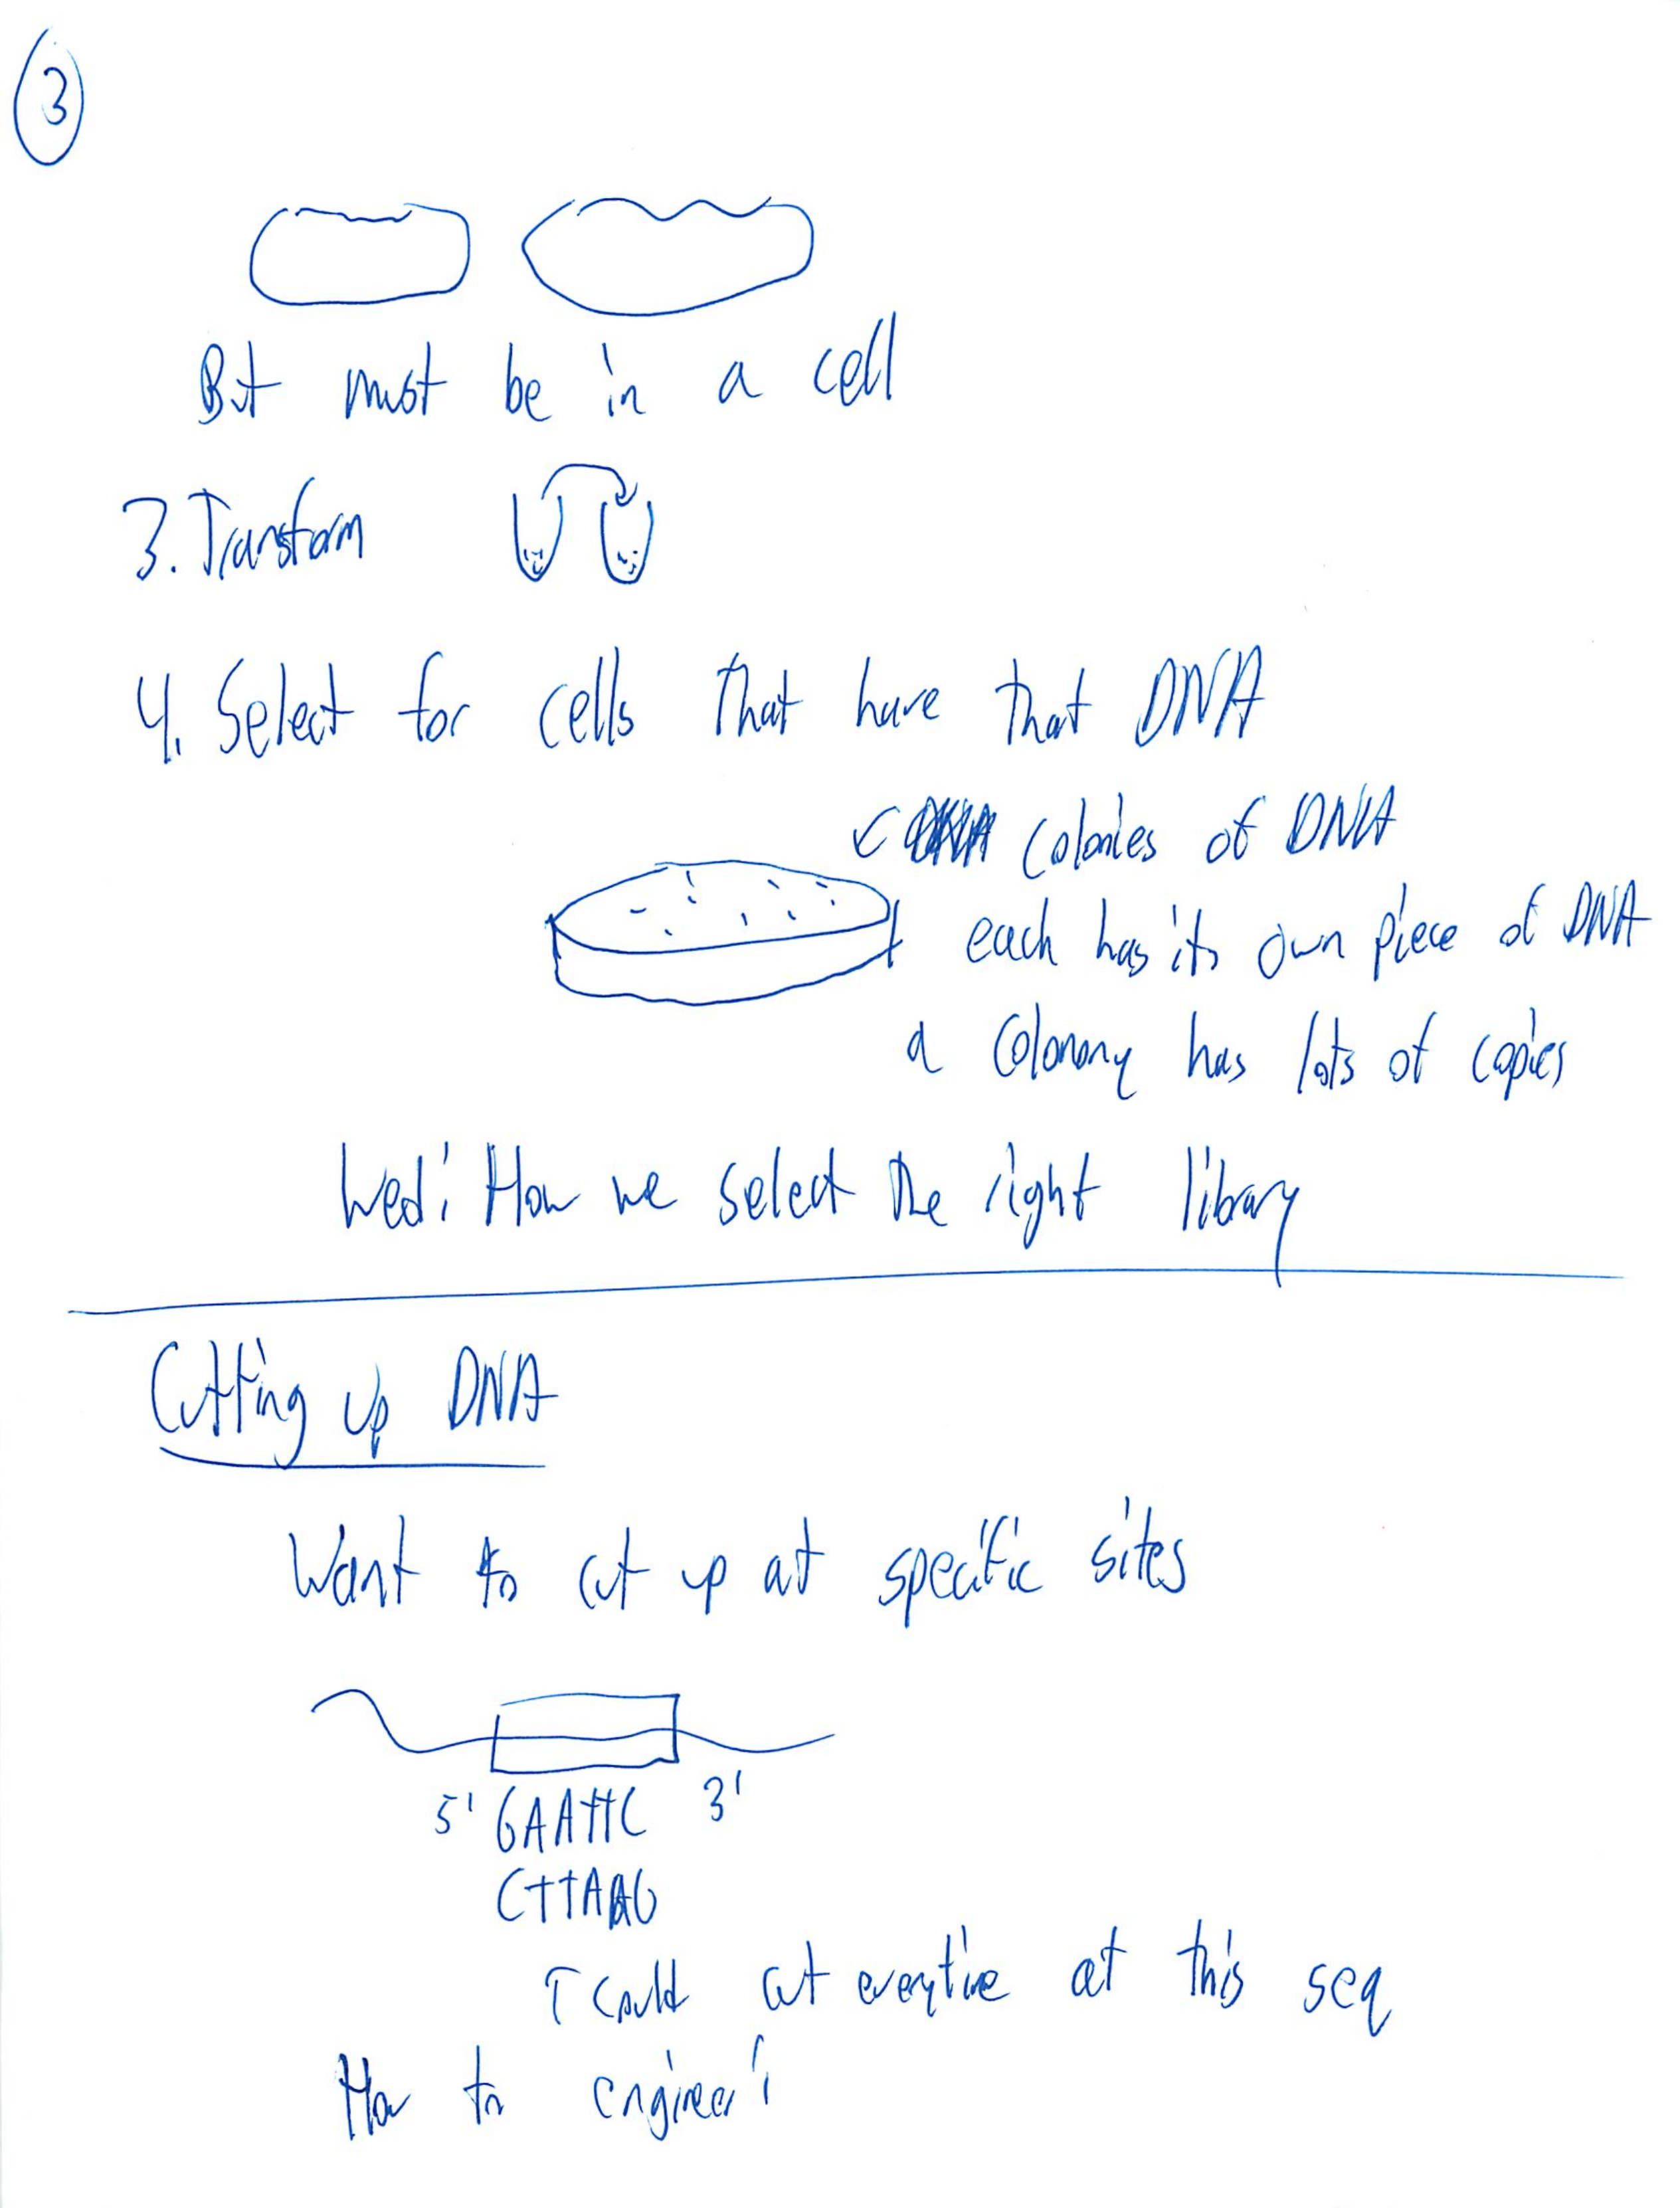 3
But must be in a cell
3. Transform
4. Select for cells that have that DNA
colonies of DNA
each has its own piece of DNA
a colonony has lots of copies
Wed: How we select the right library
Cutting up DNA
Want to cut up at specific sites
5' GAATTC 3'
CTTAAG
could cut everytime at this seq
How to engineer